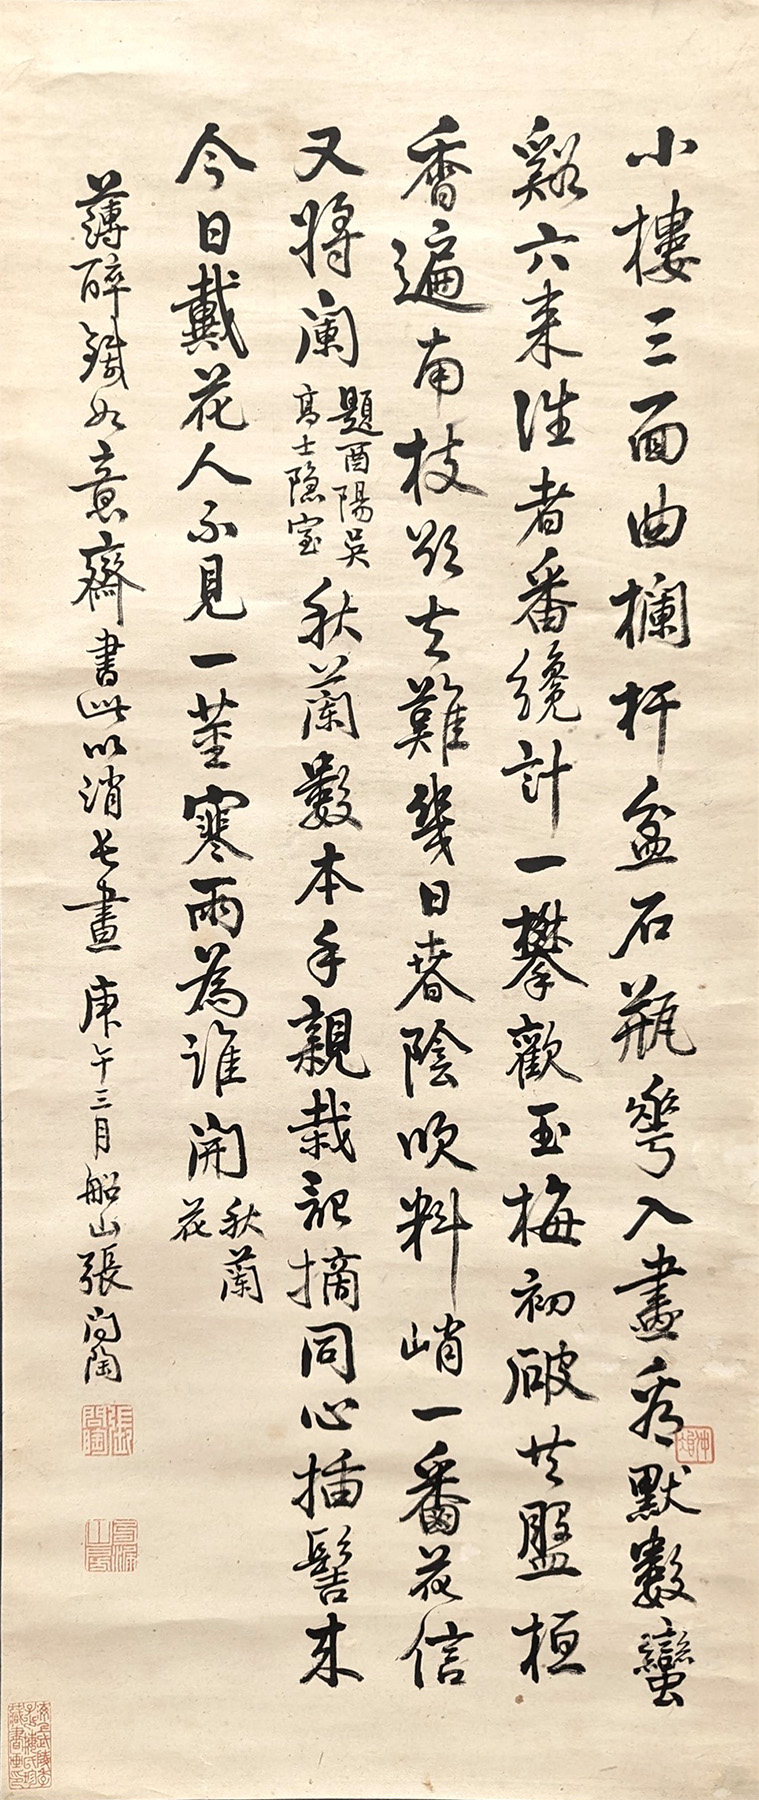 小樓三面曲欄杆盆石瓶花入畫看默數蠻
谿六來往者番纔計一攀歡玉梅初破共盤桓
香遍南枝欲去難幾日春陰吹料峭一番花信
又將闌
題酉陽吳
高士隱室
秋蘭數本手親栽記摘同心插髻來
今日戴花人不見一莖寒雨為誰開
秋蘭
花
薄醉錢如意齋書此以消長晝庚午三月船山張問陶
張問陶